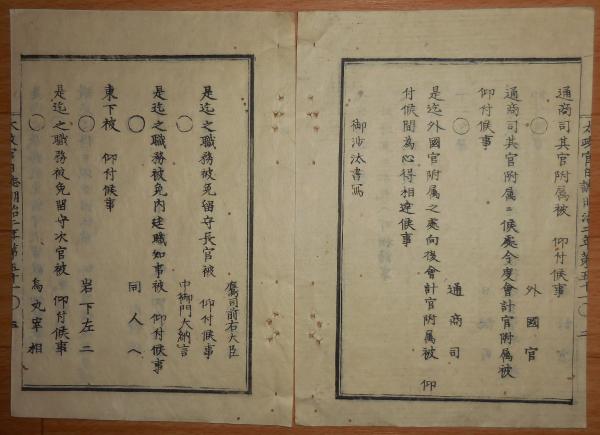 通商司其官附属被　仰付候事
外國官
通商司其官附属ニ候處今度會計官附属被
仰付候事
通商司
是迄外國官附属之處向後會計官附属被　仰
付候間為心得相達候事
御沙汰書写
鷹司前右大臣
是迄之職務被免留守長官被　仰付候事
中御門大納言
是迄之職務被免内廷職知事被　仰付候事
同人へ
東下被　仰付候事
岩下左二
是迄之職務被免留守次官被　仰付候事
烏丸宰相